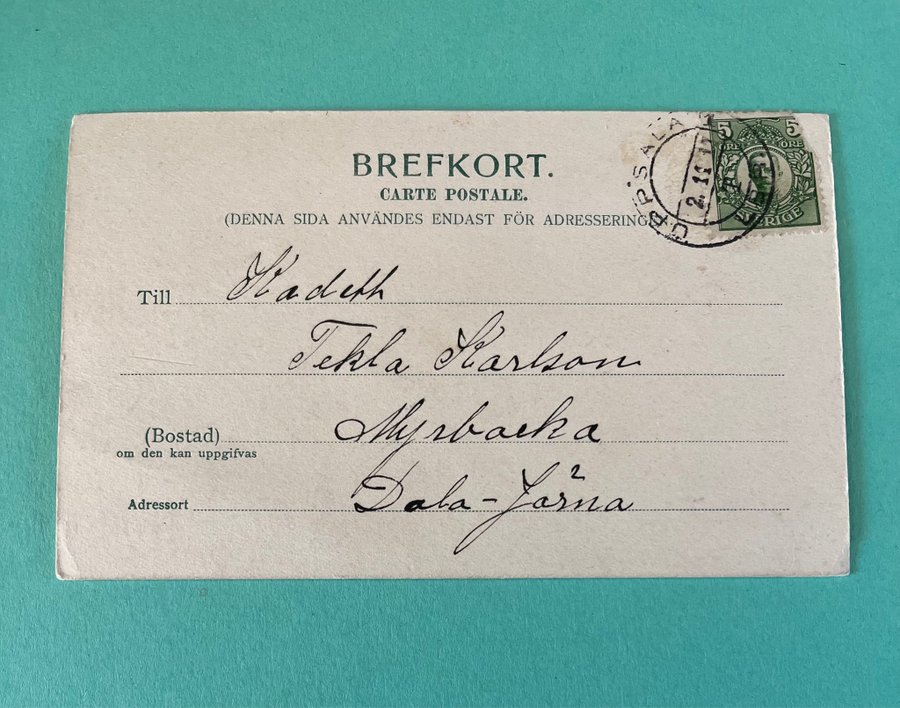 BREFKORT.
CARTE POSTALE.
(DENNA SIDA ANVÄNDES ENDAST FÖR ADRESSERING
5 5
ÖRE ÖRE
SVERIGE
UPPSALA
2.11.11
Till Kadett
Tekla Karlson
(Bostad) Myrbacka
om den kan uppgifvas
Adressort Dala-Järna